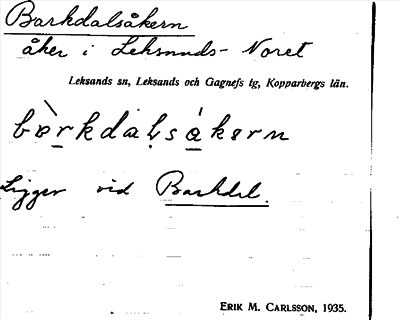 Barkdalsåkern
åker i Leksands-Noret
Leksands sn, Leksands och Gagnefs tg, Kopparbergs län.
bòrkdalsákern
Ligger vid Barkdal.
ERIK M. CARLSSON, 1935.